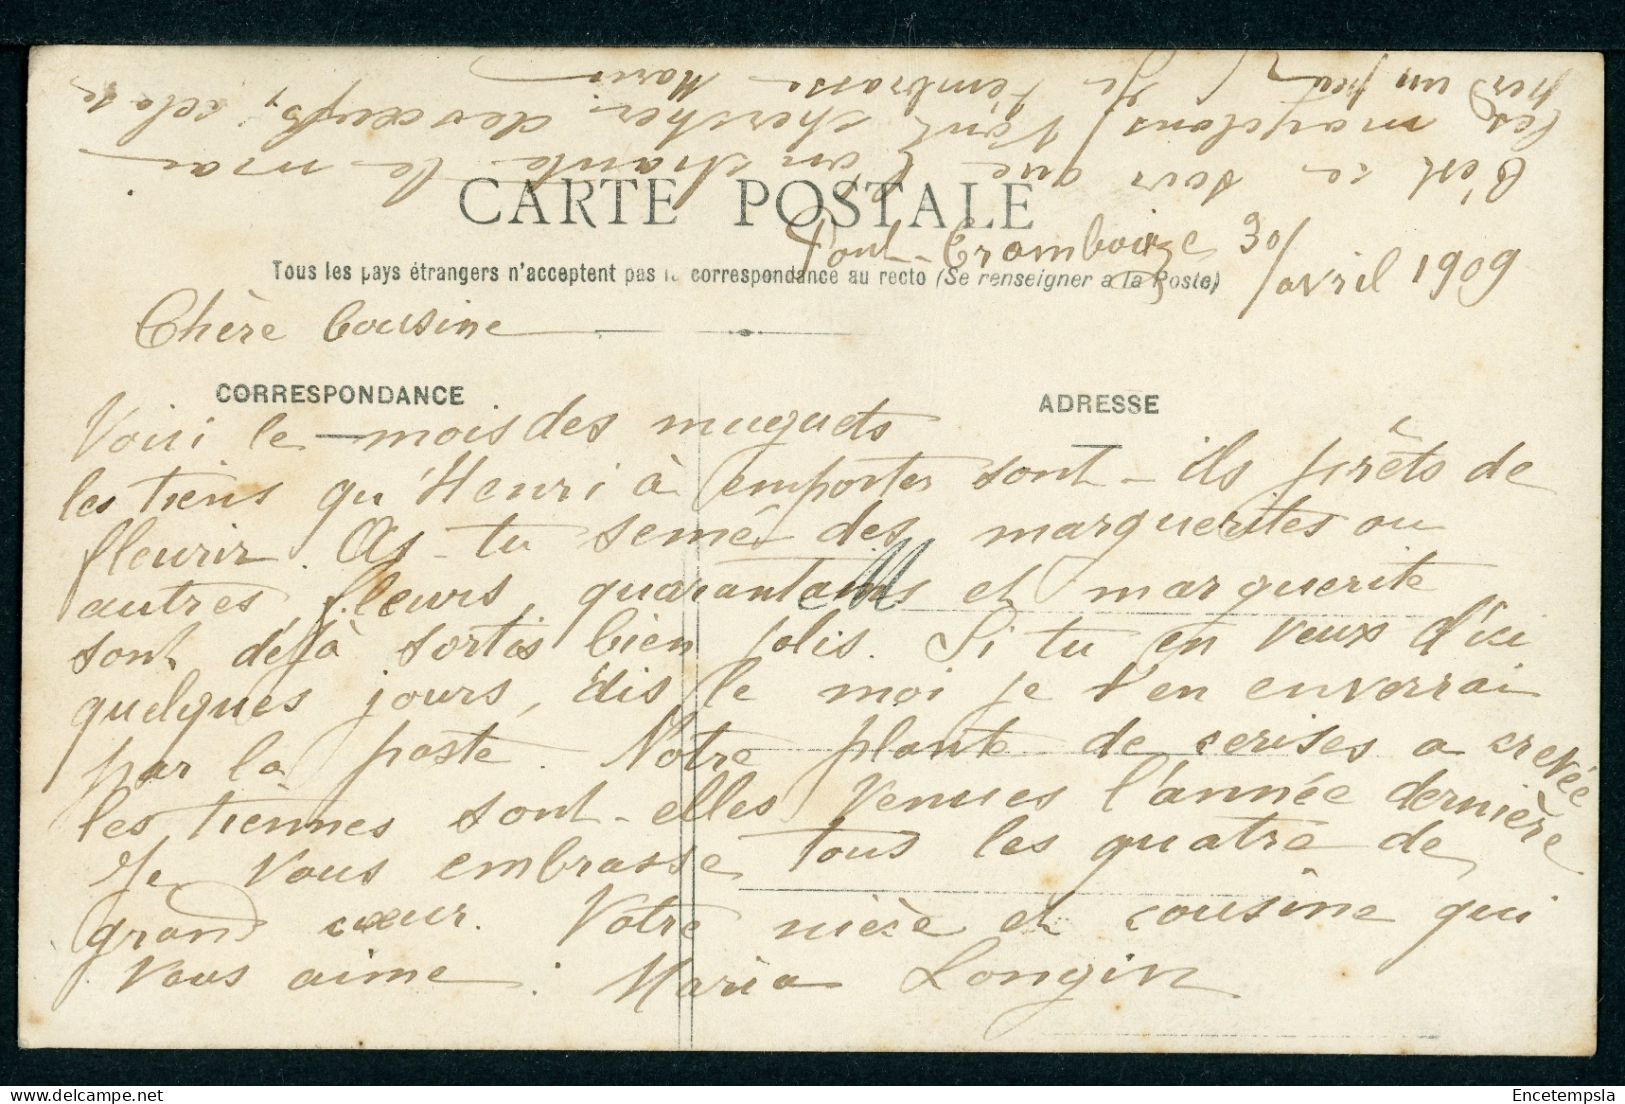 C'est ce soir que l'on chante le mai
les garçons vont chercher des œufs, cela se
perd un peu Je t'embrasse Maria
CARTE POSTALE
Pont-Trambouze 30/avril 1909
Tous les pays étrangers n'acceptent pas la correspondance au recto (Se renseigner à la Poste)
Chère Cousine
CORRESPONDANCE
ADRESSE
Voici le mois des muguets
les tiens qu'Henri à emporter sont-ils prêts de
fleurir. As-tu semé des marguerites ou
autres fleurs, quarantains et marguerite
sont déjà sortis bien jolis. Si tu en veux d'ici
quelques jours, dis le moi je t'en enverrai
par la poste. Notre plante de cerises a crevée
les tiennes sont-elles venues l'année dernière
Je vous embrasse tous les quatre de
grand cœur. Votre nièce et cousine qui
vous aime. Maria Longin
Encetempsla